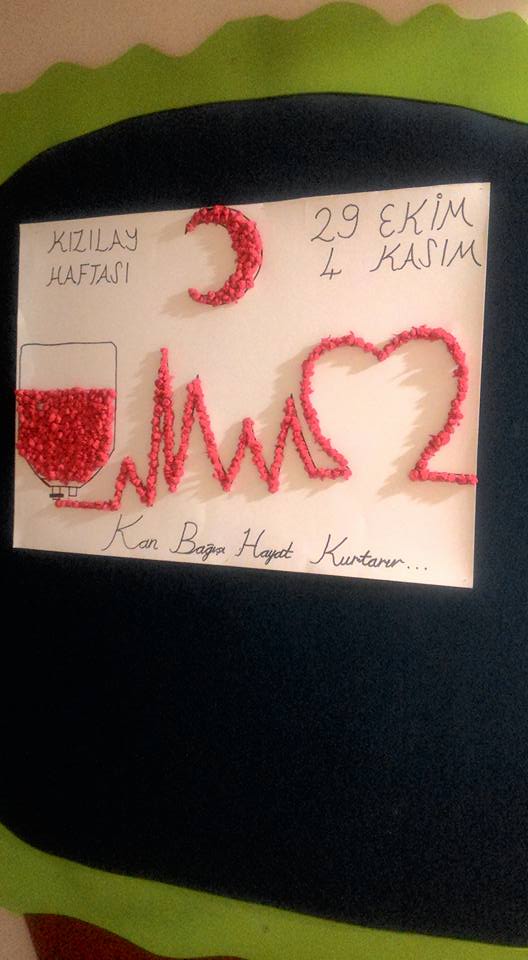 KIZILAY
HAFTASI
29 EKİM
4 KASIM
Kan Bağışı Hayat Kurtarır...